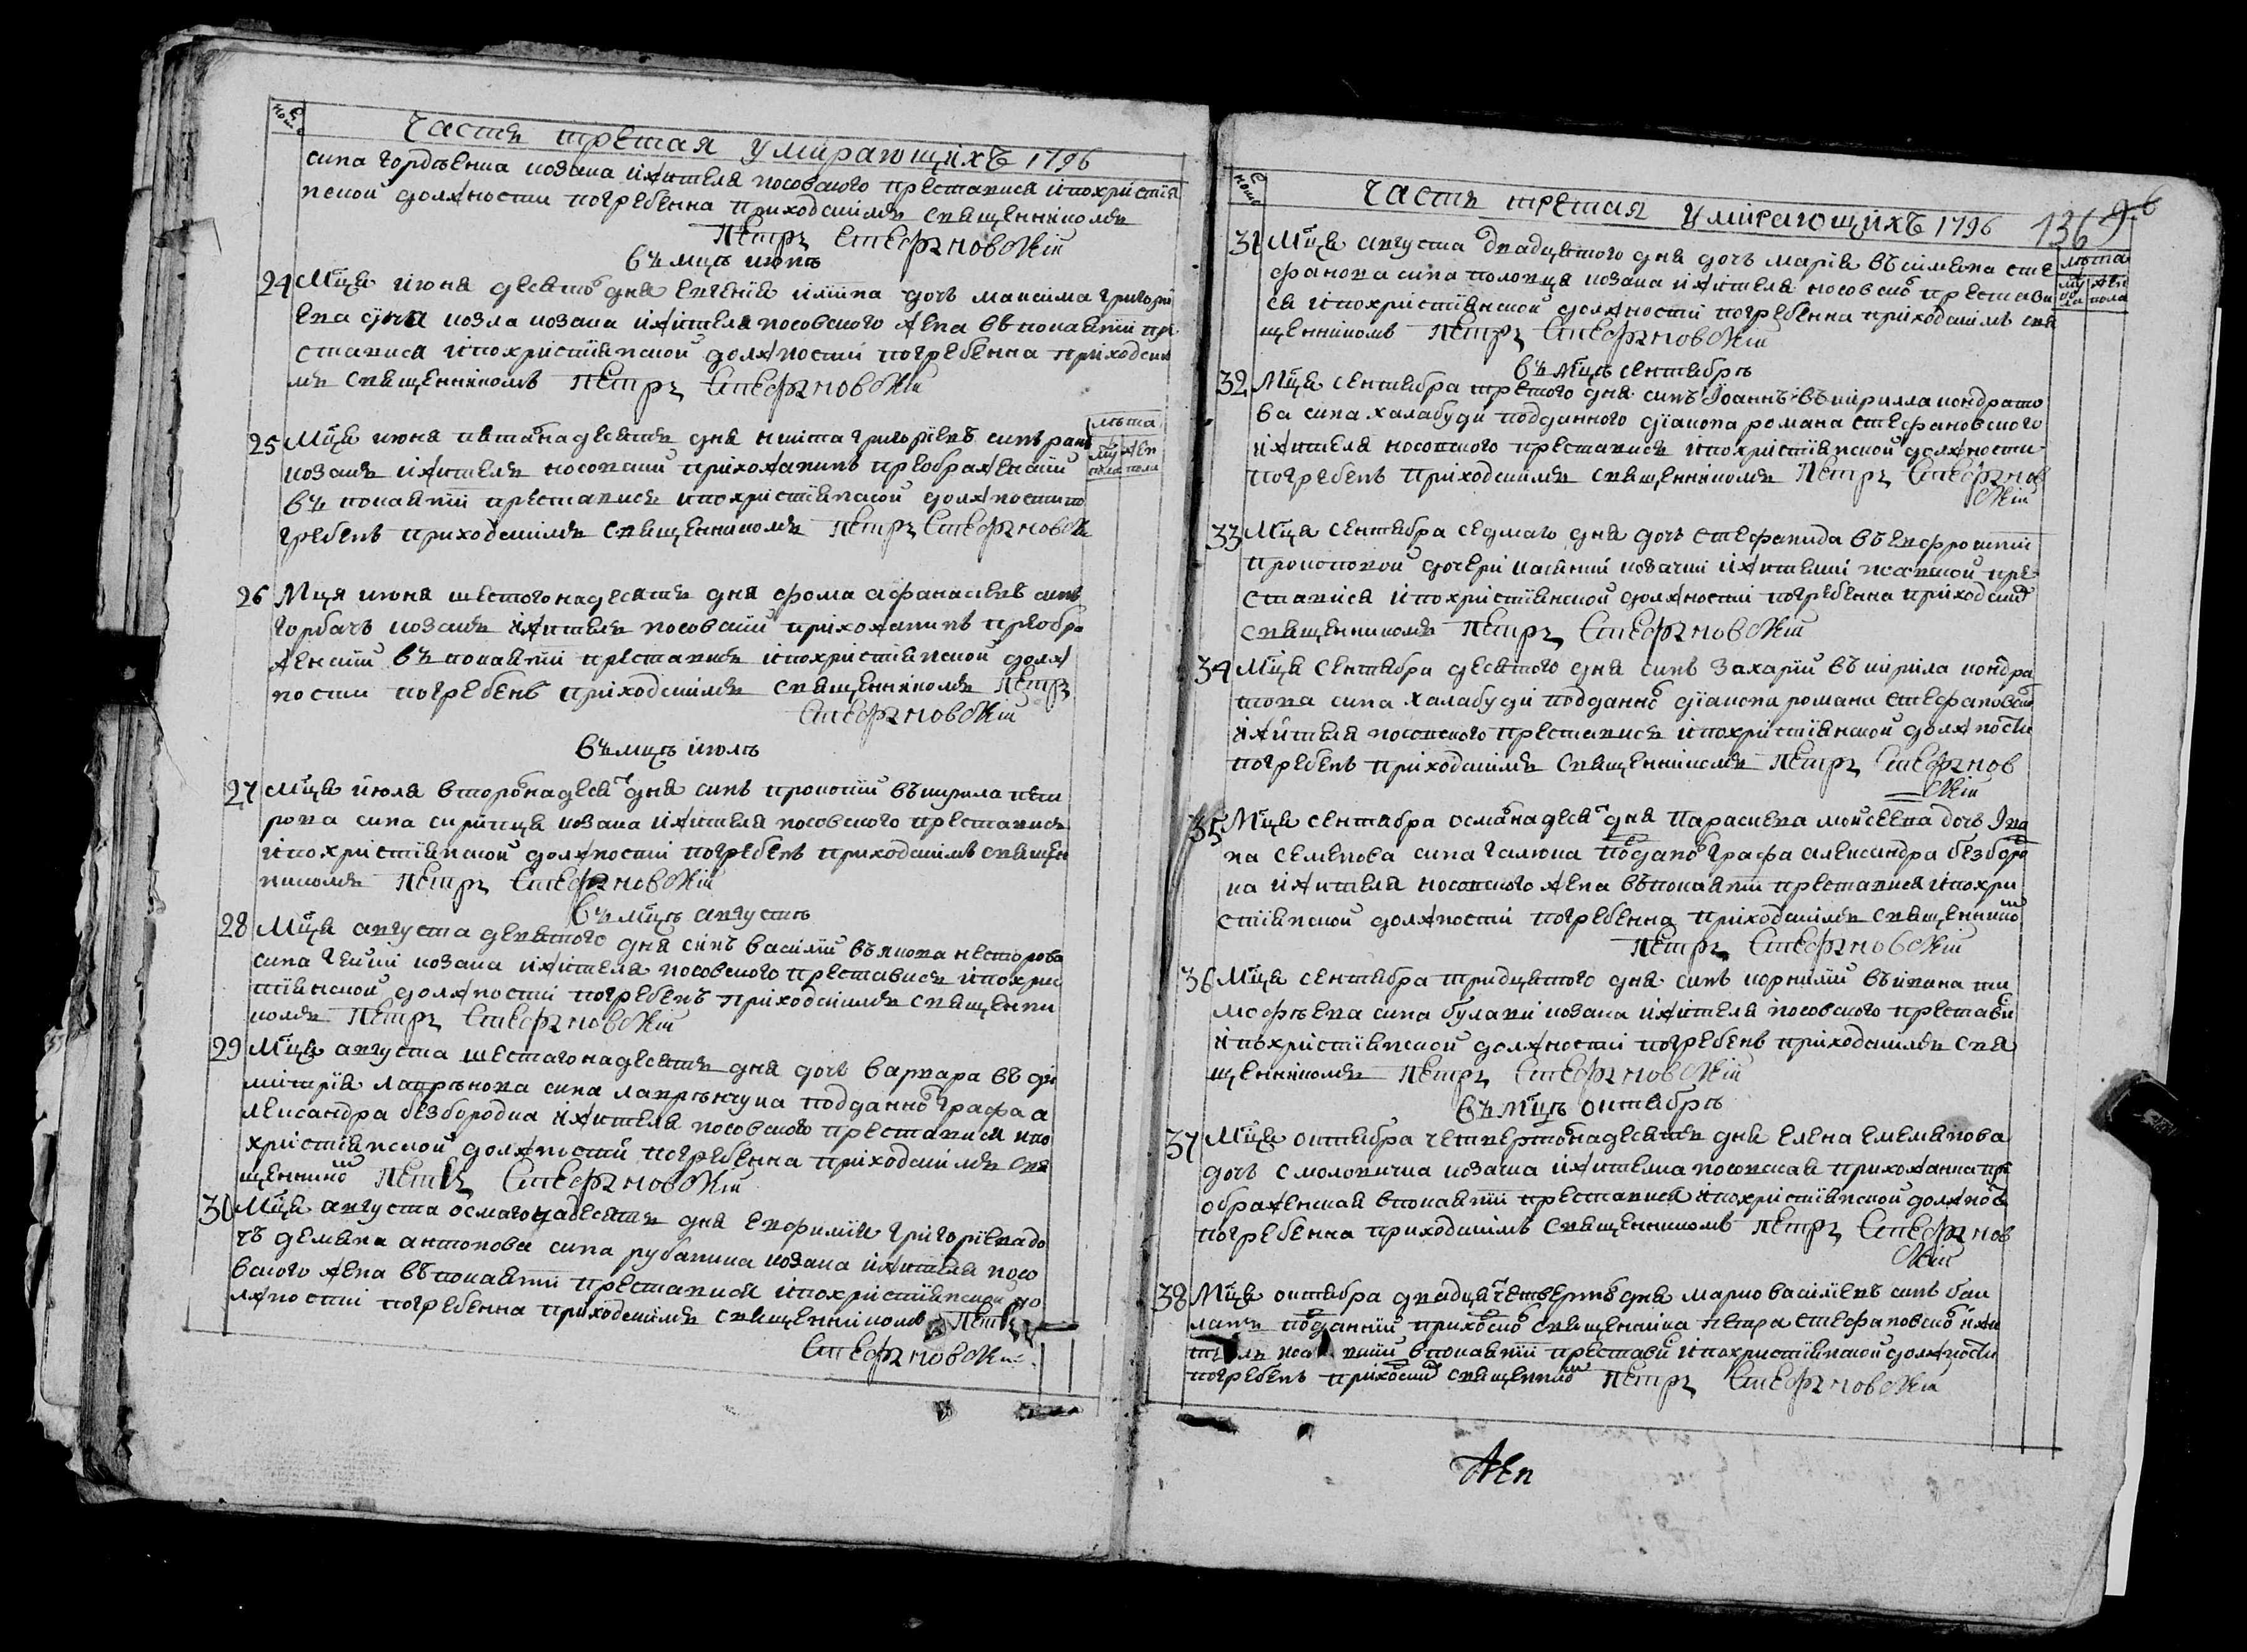 Часть третая умирающихъ 1796
сина гордѣенка козака и жителя носовского преставися и по христия
нской должности погребенна приходскимъ священникомъ
Петръ Стефановский
въ мцѣ июнѣ
24 Мца июня десято дня евгения дочь максима григори
ева сина козла козака и жителя носовского жена въ покаянии пре
ставися и по христианской должности погребенна приходски
мъ священникомъ Петръ Стефановский
лѣта
му жен
пола
25 Мца июня пятонадесять дня никита григориевъ синъ
козакъ и житель носовский прихожанинъ преображенский
въ покаянии преставися и по христианской должности по
гребенъ приходскимъ священникомъ Петръ Стефановски
26 Мця июня шестогонадесять дня фома афанасиевъ синъ
горбачъ козакъ и житель носовский прихожанинъ преобра
женский въ покаянии преставися и по христианской долж
ности погребенъ приходскимъ священникомъ Петръ
Стефановский
въ мцѣ июлѣ
27 Мца июля второнадеся дня синъ прокопий въ кирила пет
рова сина козака и жителя носовского преставися
и по христианской должности погребенъ приходскимъ священ
никомъ Петръ Стефановский
въ мцѣ августѣ
28 Мца августа девятого дня синъ василий въ якова несторова
сина козака и жителя носовского преставися и по хрис
тианской должности погребенъ приходскимъ священни
комъ Петръ Стефановский
29 Мца августа шестагонадесять дня дочь варвара въ ди
митрия лаврѣнова сина лаврѣнчука подданно графа а
лександра безбородка и жителя носовского преставися и по
христианской должности погребенна приходскимъ свя
щеннико Петръ Стефановский
30 Мца августа осмагонадесять дня евфимия григориева до
чъ демяна антонова сина рубаника козака и жителя носо
вского жена въ покаянии преставися и по христианской до
лжности погребенна приходскимъ священникомъ Петръ
Стефановский
Часть третая умирающихъ 1796 136 96
лѣта
му жен
пола пола
31 Мца августа двадцятого дня дочь мария въ симеона сте
фанова сина половця козака и жителя носовско престави
ся и по христианской должности погребенна приходскимъ свя
щенникомъ Петръ Стефановский
въ мцѣ сентябрѣ
32 Мца сентября третого дня синъ Иоаннъ въ кирилла кондрато
ва сина халабуди подданного диакона романа стефановского
и жителя носовского преставися и по христианской должности
погребенъ приходскимъ священникомъ Петръ Стефанов
ский
33 Мца сентября седмаго дня дочь стефанида въ евфросинии
прокоповой дочери козачки и жителки носовской пре
ставися и по христианской должности погребенна приходским
священникомъ Петръ Стефановский
34 Мца сентября десятого дня синъ захарий въ кирила кондра
това сина халабуди подданно диакона романа стефановско
и жителя носовского преставися и по христианской должности
погребенъ приходскимъ священникомъ Петръ Стефанов
ский
35 Мца сентября осмонадеся дня Параскева мойсеева дочь Ива
на семенова сина галюка подано графа александра безборо
ка и жителя носовского жена въ покаянии преставися и по хри
стианской должности погребенна приходскимъ священнико
Петръ Стефановский
36 Мца сентября тридцятого дня синъ корнилий въ ивана ти
мофѣева сина булави козака и жителя носовского престави
и по христианской должности погребенъ приходскимъ свя
щенникомъ Петръ Стефановский
въ мцѣ октябрѣ
37 Мца октября четвертонадесять дня елена емелянова
дочь смоловичка козачка и жителка носовская прихожанка пре
ображенская в покаянии преставися и по христианской должнос
погребенна приходскимъ священникомъ Петръ Стефанов
ский
38 Мца октября двадця четверто дня марко василиевъ синъ бак
лапъ поданний прихоско священника петра стефановско и жи
тель носовский в покаянии престави и по христианской должности
погребенъ прихоским священико Петръ Стефановский
Жен